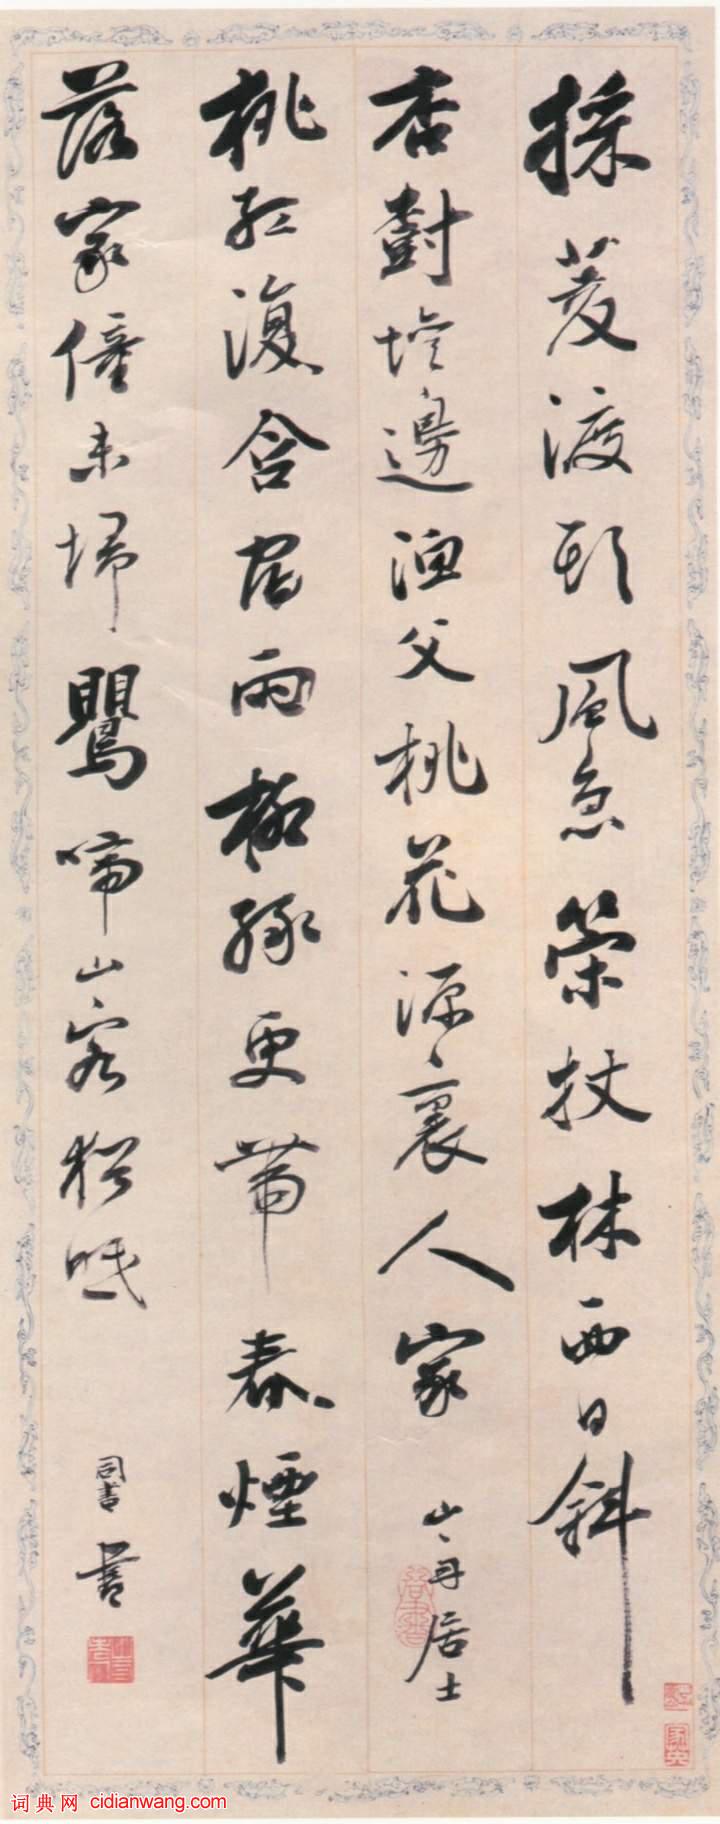 採菱渡頭風急策杖林西日斜
杏樹壇邊漁父桃花源裏人家 山舟居士
桃紅復含宿雨柳綠更帶春煙華
落家僮未埽鸎啼山客猶眠 同書書
词典网 cidianwang.com